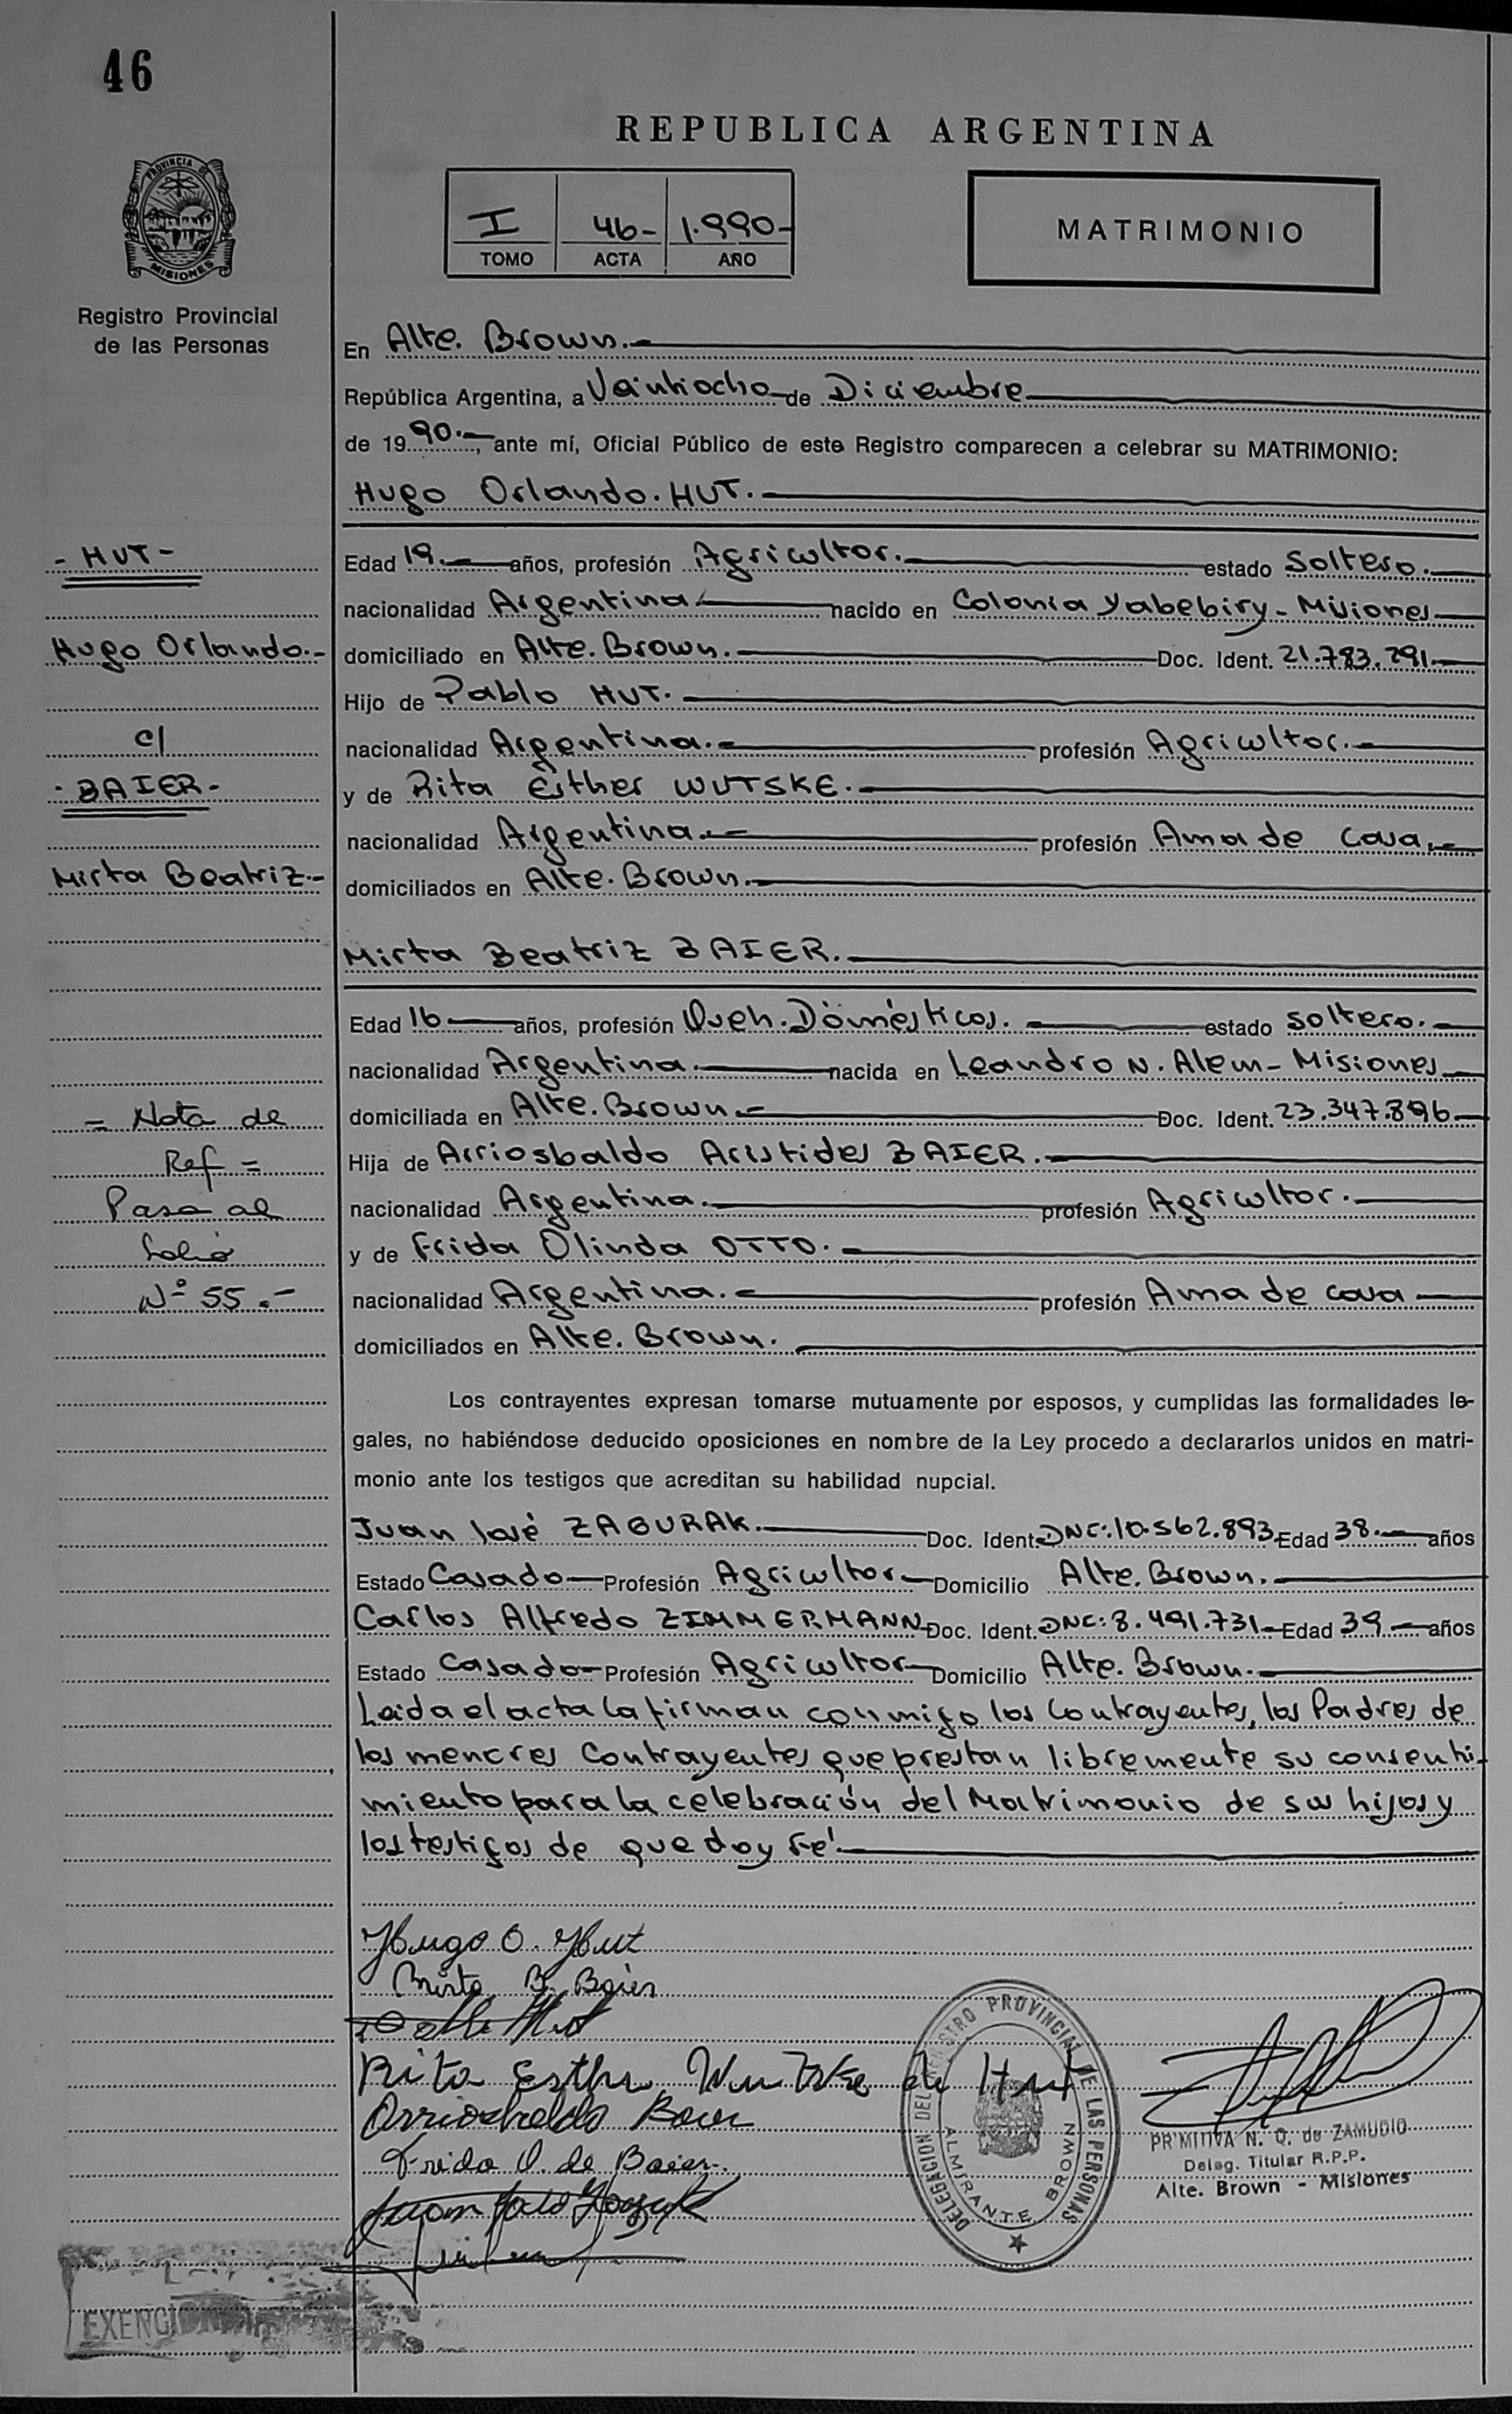 46
REPUBLICA ARGENTINA
PROVINCIA DE
MISIONES
Registro Provincial
de las Personas
I 46- 1.990-
TOMO ACTA AÑO
MATRIMONIO
En Alte. Brown.-
República Argentina, a Veintiocho de Diciembre
de 1990.-, ante mí, Oficial Público de este Registro comparecen a celebrar su MATRIMONIO:
Hugo Orlando. HUT.-
- HUT -
Hugo Orlando.-
c/
- BAIER -
Mirta Beatriz.-
= Nota de
Ref =
Pasa al
folio
Nº 55.-
Edad 19.- años, profesión Agricultor.- estado Soltero.-
nacionalidad Argentina.- nacido en Colonia Yabebiry - Misiones
domiciliado en Alte. Brown.- Doc. Ident. 21.783.291.-
Hijo de Pablo HUT.-
nacionalidad Argentina.- profesión Agricultor.-
y de Rita Esther WUTSKE.-
nacionalidad Argentina.- profesión Ama de casa.-
domiciliados en Alte. Brown.-
Mirta Beatriz BAIER.-
Edad 16 - años, profesión Queh. Domésticos.- estado soltero.-
nacionalidad Argentina.- nacida en Leandro N. Alem - Misiones
domiciliada en Alte. Brown.- Doc. Ident. 23.347.896.-
Hija de Arriosbaldo Aristides BAIER.-
nacionalidad Argentina.- profesión Agricultor.-
y de Frida Olinda OTTO.-
nacionalidad Argentina.- profesión Ama de casa
domiciliados en Alte. Brown.
Los contrayentes expresan tomarse mutuamente por esposos, y cumplidas las formalidades le-
gales, no habiéndose deducido oposiciones en nombre de la Ley procedo a declararlos unidos en matri-
monio ante los testigos que acreditan su habilidad nupcial.
Juan José ZAGURAK.- Doc. Ident. DNI: 10.562.893 Edad 38.- años
Estado Casado - Profesión Agricultor - Domicilio Alte. Brown.-
Carlos Alfredo ZIMMERMANN Doc. Ident. DNI: 8.491.731 - Edad 39 - años
Estado Casado - Profesión Agricultor Domicilio Alte. Brown.-
Leida el acta la firman conmigo los contrayentes, los Padres de
los menores Contrayentes que prestan libremente su consenti-
miento para la celebración del Matrimonio de sus hijos y
los testigos de que doy fé.
Hugo O. Hut
Mirta B. Baier
Rita Esther Wutske de Hut
Arriosbaldo Baier
Frida O. de Baier.
DELEGACION DEL REGISTRO PROVINCIAL DE LAS PERSONAS
ALMIRANTE BROWN
PRIMITIVA N. Q. de ZAMUDIO
Deleg. Titular R.P.P.
Alte. Brown - Misiones